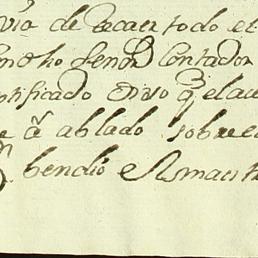 via de Recaer todo el
dho señor Contador
tificado Dixo q̃ el
e a ablado sobre
bendio el